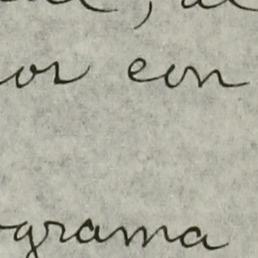 or con
grama